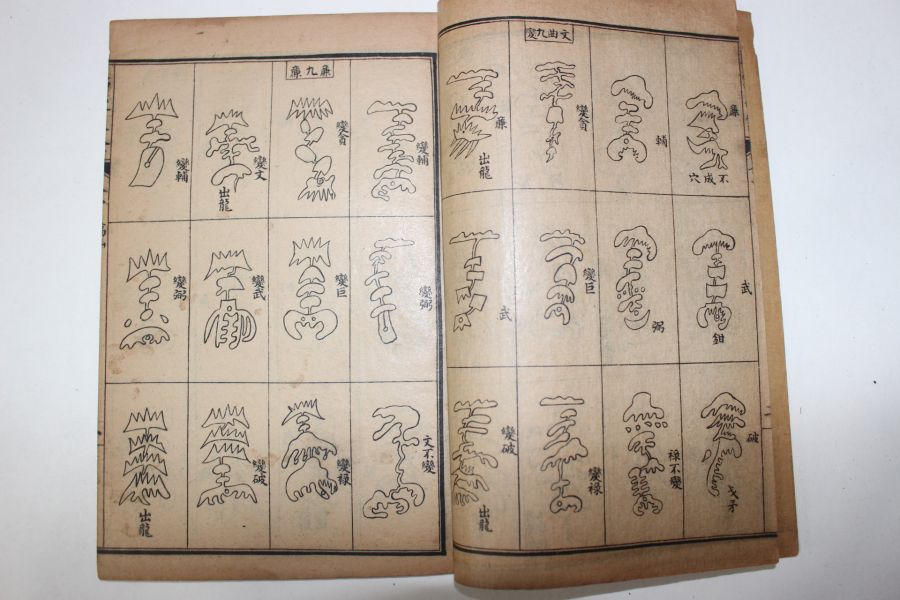 廉
不成穴
武
鉗
破
戈矛
輔
弼
禄不變
文曲九變
變貪
變巨
變禄
廉
出龍
武
變破
出龍
變輔
變弼
文不變
廉九變
變貪
變巨
變禄
變文
出龍
變武
變破
變輔
變弼
出龍